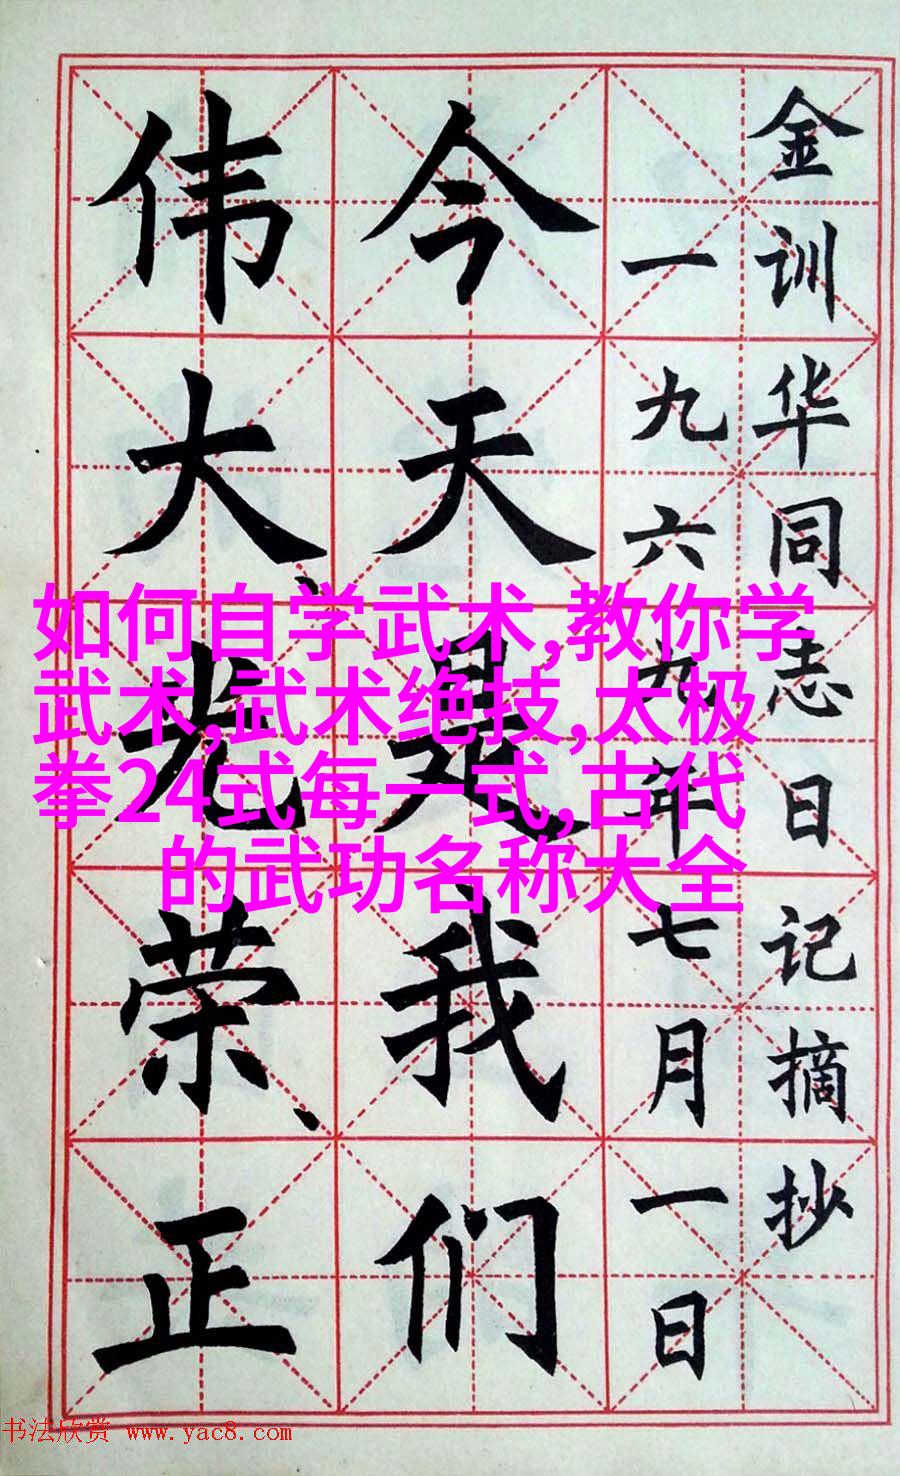 金训华同志日记摘抄
一九六九年七月一日
今天是我们
伟大、光荣、正
如何自学武术,教你学
武术,武术绝技,太极
拳24式每一式,古代
的武功名称大全
书法欣赏 www.yac8.com